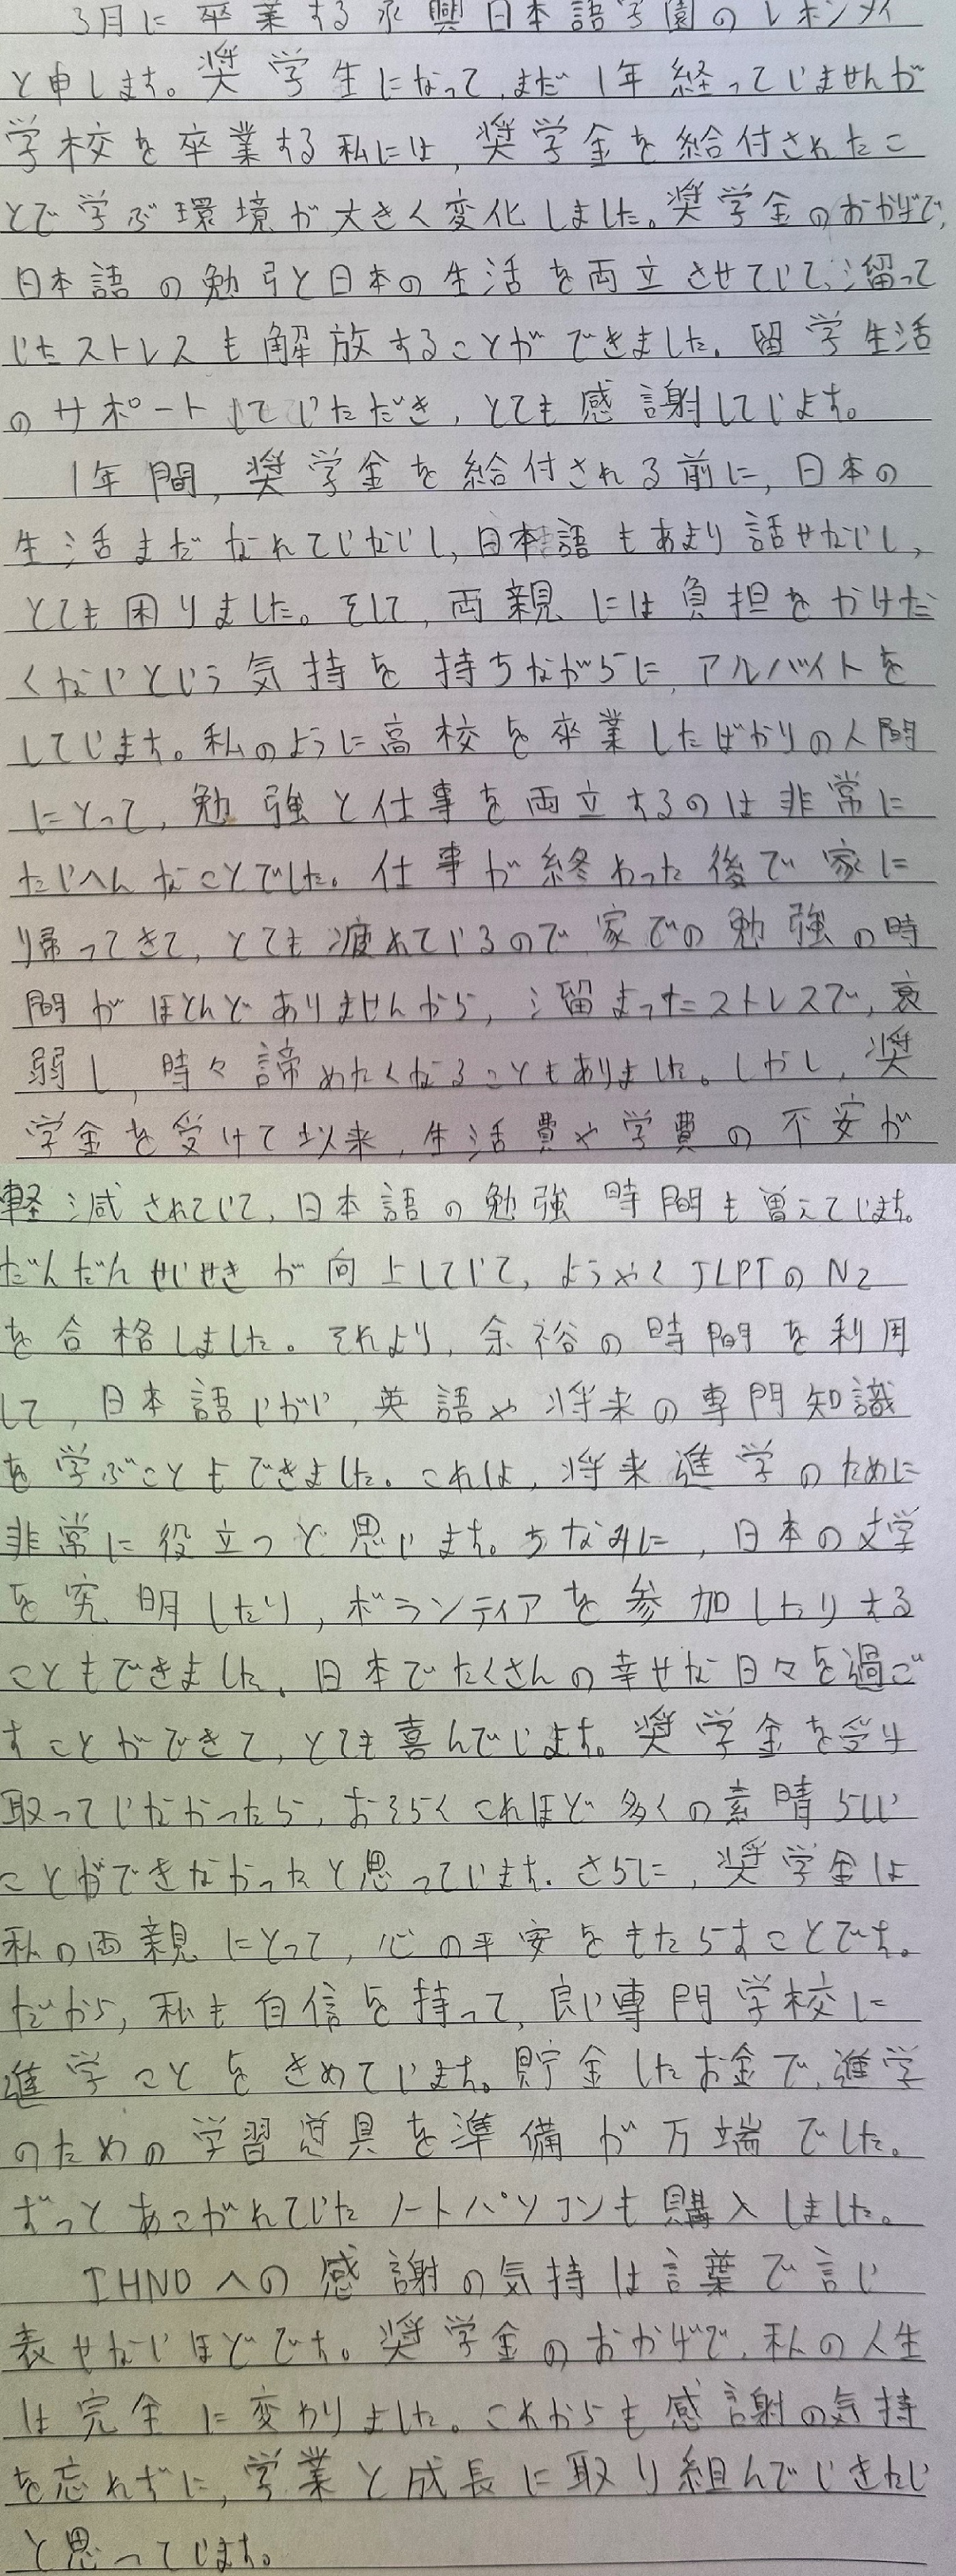 3月に卒業する永興日本語学園のレホンダイ
と申します。奨学生になって、まだ1年経っていませんが
学校を卒業する私には、奨学金を給付されたこ
とで学ぶ環境が大きく変化しました。奨学金のおかげで、
日本語の勉引と日本の生活を両立させていて、溜って
いたストレスも解放することができました。留学生活
のサポートしていただき、とても感謝しています。
1年間、奨学金を給付される前に、日本の
生活まだなれていないし、日本語もあまり話せないし、
とても困りました。そして、両親には負担をかけた
くないという気持を持ちながらに、アルバイトを
しています。私のように高校を卒業したばかりの人間
にとって、勉強と仕事を両立するのは非常に
たいへんなことでした。仕事が終わった後で家に
帰ってきて、とても疲れているので家での勉強の時
間がほとんどありませんから、溜まったストレスで、衰
弱し、時々諦めたくなることもありました。しかし、奨
学金を受けて以来、生活費や学費の不安が
軽減されていて、日本語の勉強時間も増えています。
だんだんせいせきが向上していて、ようやくJLPTのN2
を合格しました。それより、余裕の時間を利用
して、日本語いがい、英語や将来の専門知識
を学ぶこともできました。これは、将来進学のために
非常に役立つと思います。ちなみに、日本の文学
を究明したり、ボランティアを参加したりする
こともできました。日本でたくさんの幸せな日々を過ご
すことができて、とても喜んでいます。奨学金を受け
取っていなかったら、おそらくこれほど多くの素晴らしい
ことができなかったと思っています。さらに、奨学金は
私の両親にとって、心の平安をもたらすことです。
だから、私も自信を持って、良い専門学校に
進学ことをきめています。貯金したお金で、進学
のための学習道具を準備が万端でした。
ずっとあこがれていたノートパソコンも購入しました。
IHNOへの感謝の気持は言葉で言い
表せないほどです。奨学金のおかげで、私の人生
は完全に変わりました。これからも感謝の気持
を忘れずに、学業と成長に取り組んでいきたい
と思っています。